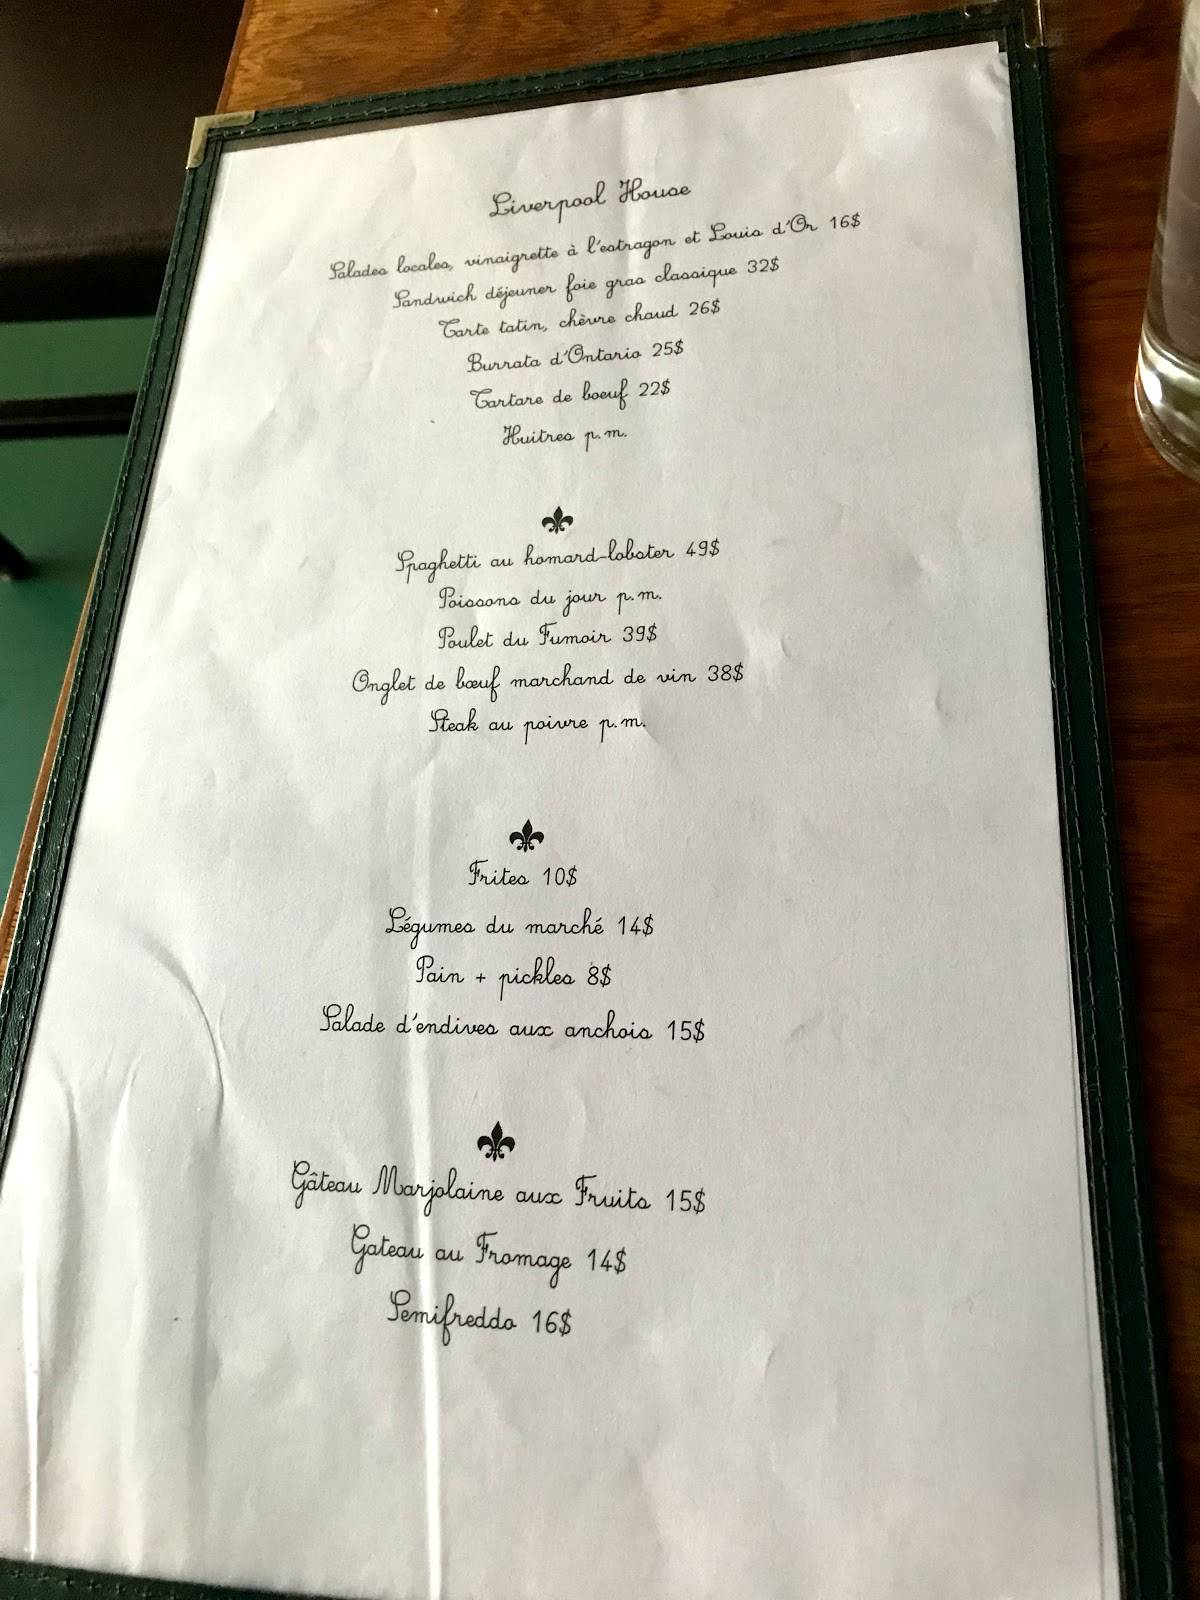 Liverpool House
Salades locales, vinaigrette à l'estragon et Louis d'Or 16$
Sandwich déjeuner foie gras classique 32$
Tarte tatin, chèvre chaud 26$
Burrata d'Ontario 25$
Tartare de boeuf 22$
Huitres p.m.
Spaghetti au homard-lobster 49$
Poissons du jour p.m.
Poulet du Fumoir 39$
Onglet de bœuf marchand de vin 38$
Steak au poivre p.m.
Frites 10$
Légumes du marché 14$
Pain + pickles 8$
Salade d'endives aux anchois 15$
Gâteau Marjolaine aux Fruits 15$
Gateau au Fromage 14$
Semifreddo 16$